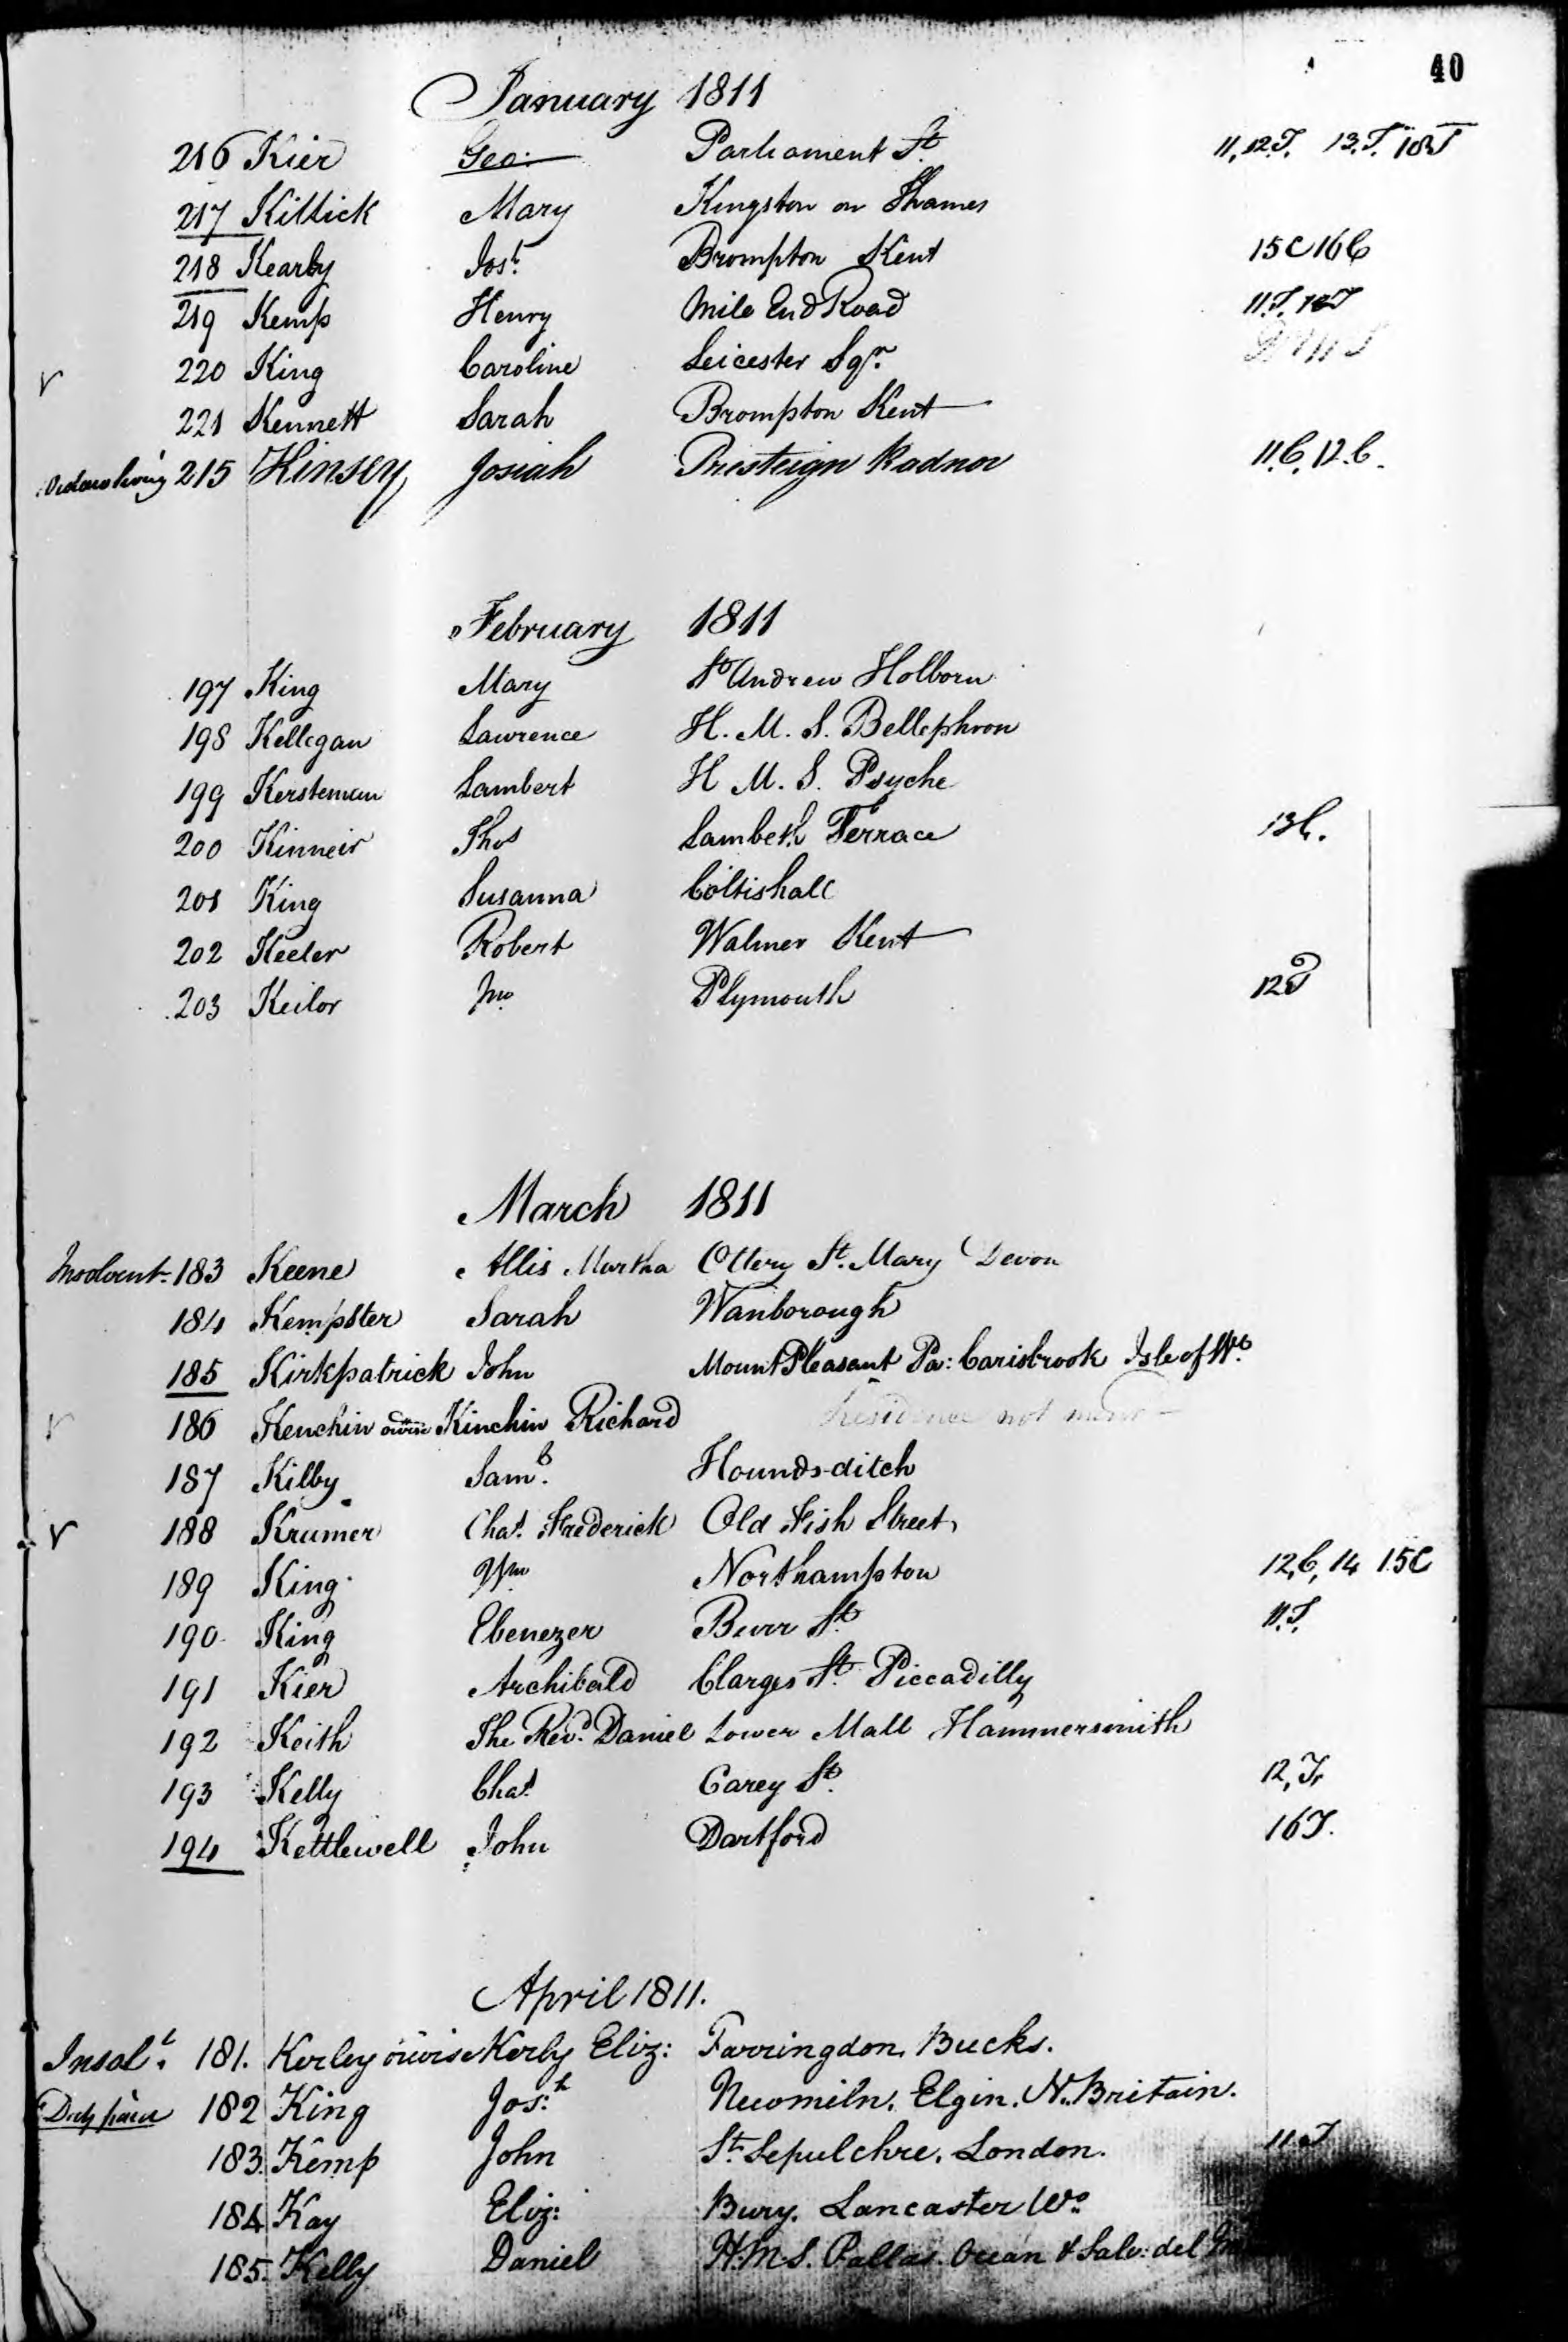 40
January 1811
216 Kier Geo: Parliament St. 11, 12.T. 13.T. 18T
217 Killick Mary Kingston on Thames
218 Kearby Josh. Brompton Kent 15C 16C
219 Kemp Henry Mile End Road 11.T.
220 King Caroline Leicester Sqr.
221 Kennett Sarah Brompton Kent
215 Kinsey Josiah Presteign Radnor 11.C, 12.C.
February 1811
197 King Mary St Andrew Holborn
198 Kellegan Lawrence H. M. S. Bellephron
199 Kersteman Lambert H M. S. Psyche
200 Kinneir Thos Lambeth Terrace 13C.
201 King Susanna Coltishall
202 Keeler Robert Walmer Kent
203 Keilor Jno. Plymouth 12T
March 1811
Insolvent. 183 Keene Allis Martha Ottery St. Mary Devon
184 Kempster Sarah Wanborough
185 Kirkpatrick John Mount Pleasant Pa: Carisbrook Isle of Wt.
186 Kenchin orwise Kinchin Richard Residence not
187 Kilby Saml. Hounds-ditch
188 Krumer Chas. Frederick Old Fish Street
189 King Wm. Northampton 12,C, 14 15C
190 King Ebenezer Burr St. 11.T.
191 Kier Archibald Clarges St. Piccadilly
192 Keith The Revd. Daniel Lower Mall Hammersmith
193 Kelly Chas. Carey St. 12,T,
194 Kettlewell John Dartford 16T.
April 1811.
Insolt. 181. Kerley orwise Kerby Eliz: Farringdon, Bucks.
182 King Jos:h Newmiln, Elgin, N. Britain.
183. Kemp John St. Sepulchre, London. 11.T
184 Kay Eliz: Bury, Lancaster Wo.
185. Kelly Daniel H.M.S. Pallas. Ocean & Salv: del